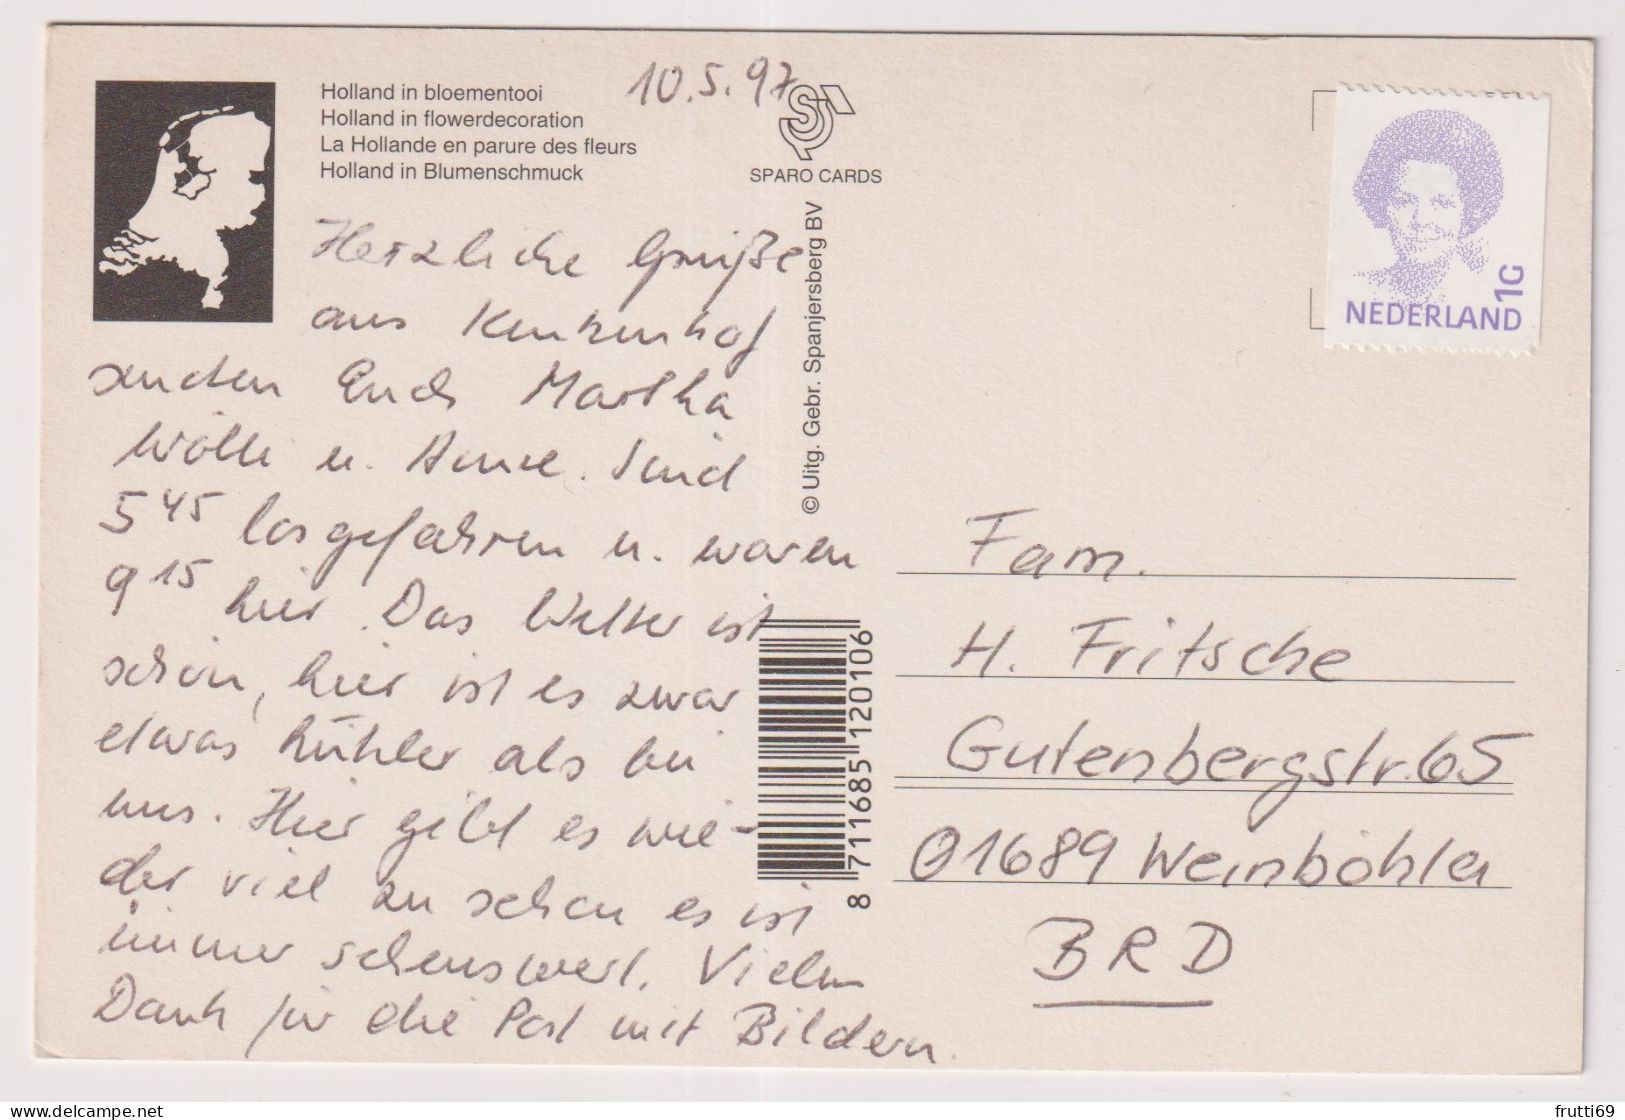 Holland in bloementooi
Holland in flowerdecoration
La Hollande en parure des fleurs
Holland in Blumenschmuck
10.5.97
SPARO CARDS
© Uitg. Gebr. Spanjersberg BV
NEDERLAND 1G
Herzliche Grüße
aus
senden Euch Martha
u. Anne. Sind
5 45 losgefahren u. waren
9 15 hier. Das Wetter ist
schön, hier ist es zwar
etwas kühler als bei
uns. Hier gibt es wie-
der viel zu sehen es ist
immer sehenswert. Vielen
Dank für die Post mit Bildern.
8 711685 120106
Fam.
H. Fritsche
Gutenbergstr. 65
01689 Weinböhla
BRD
delcampe.net
frutti69